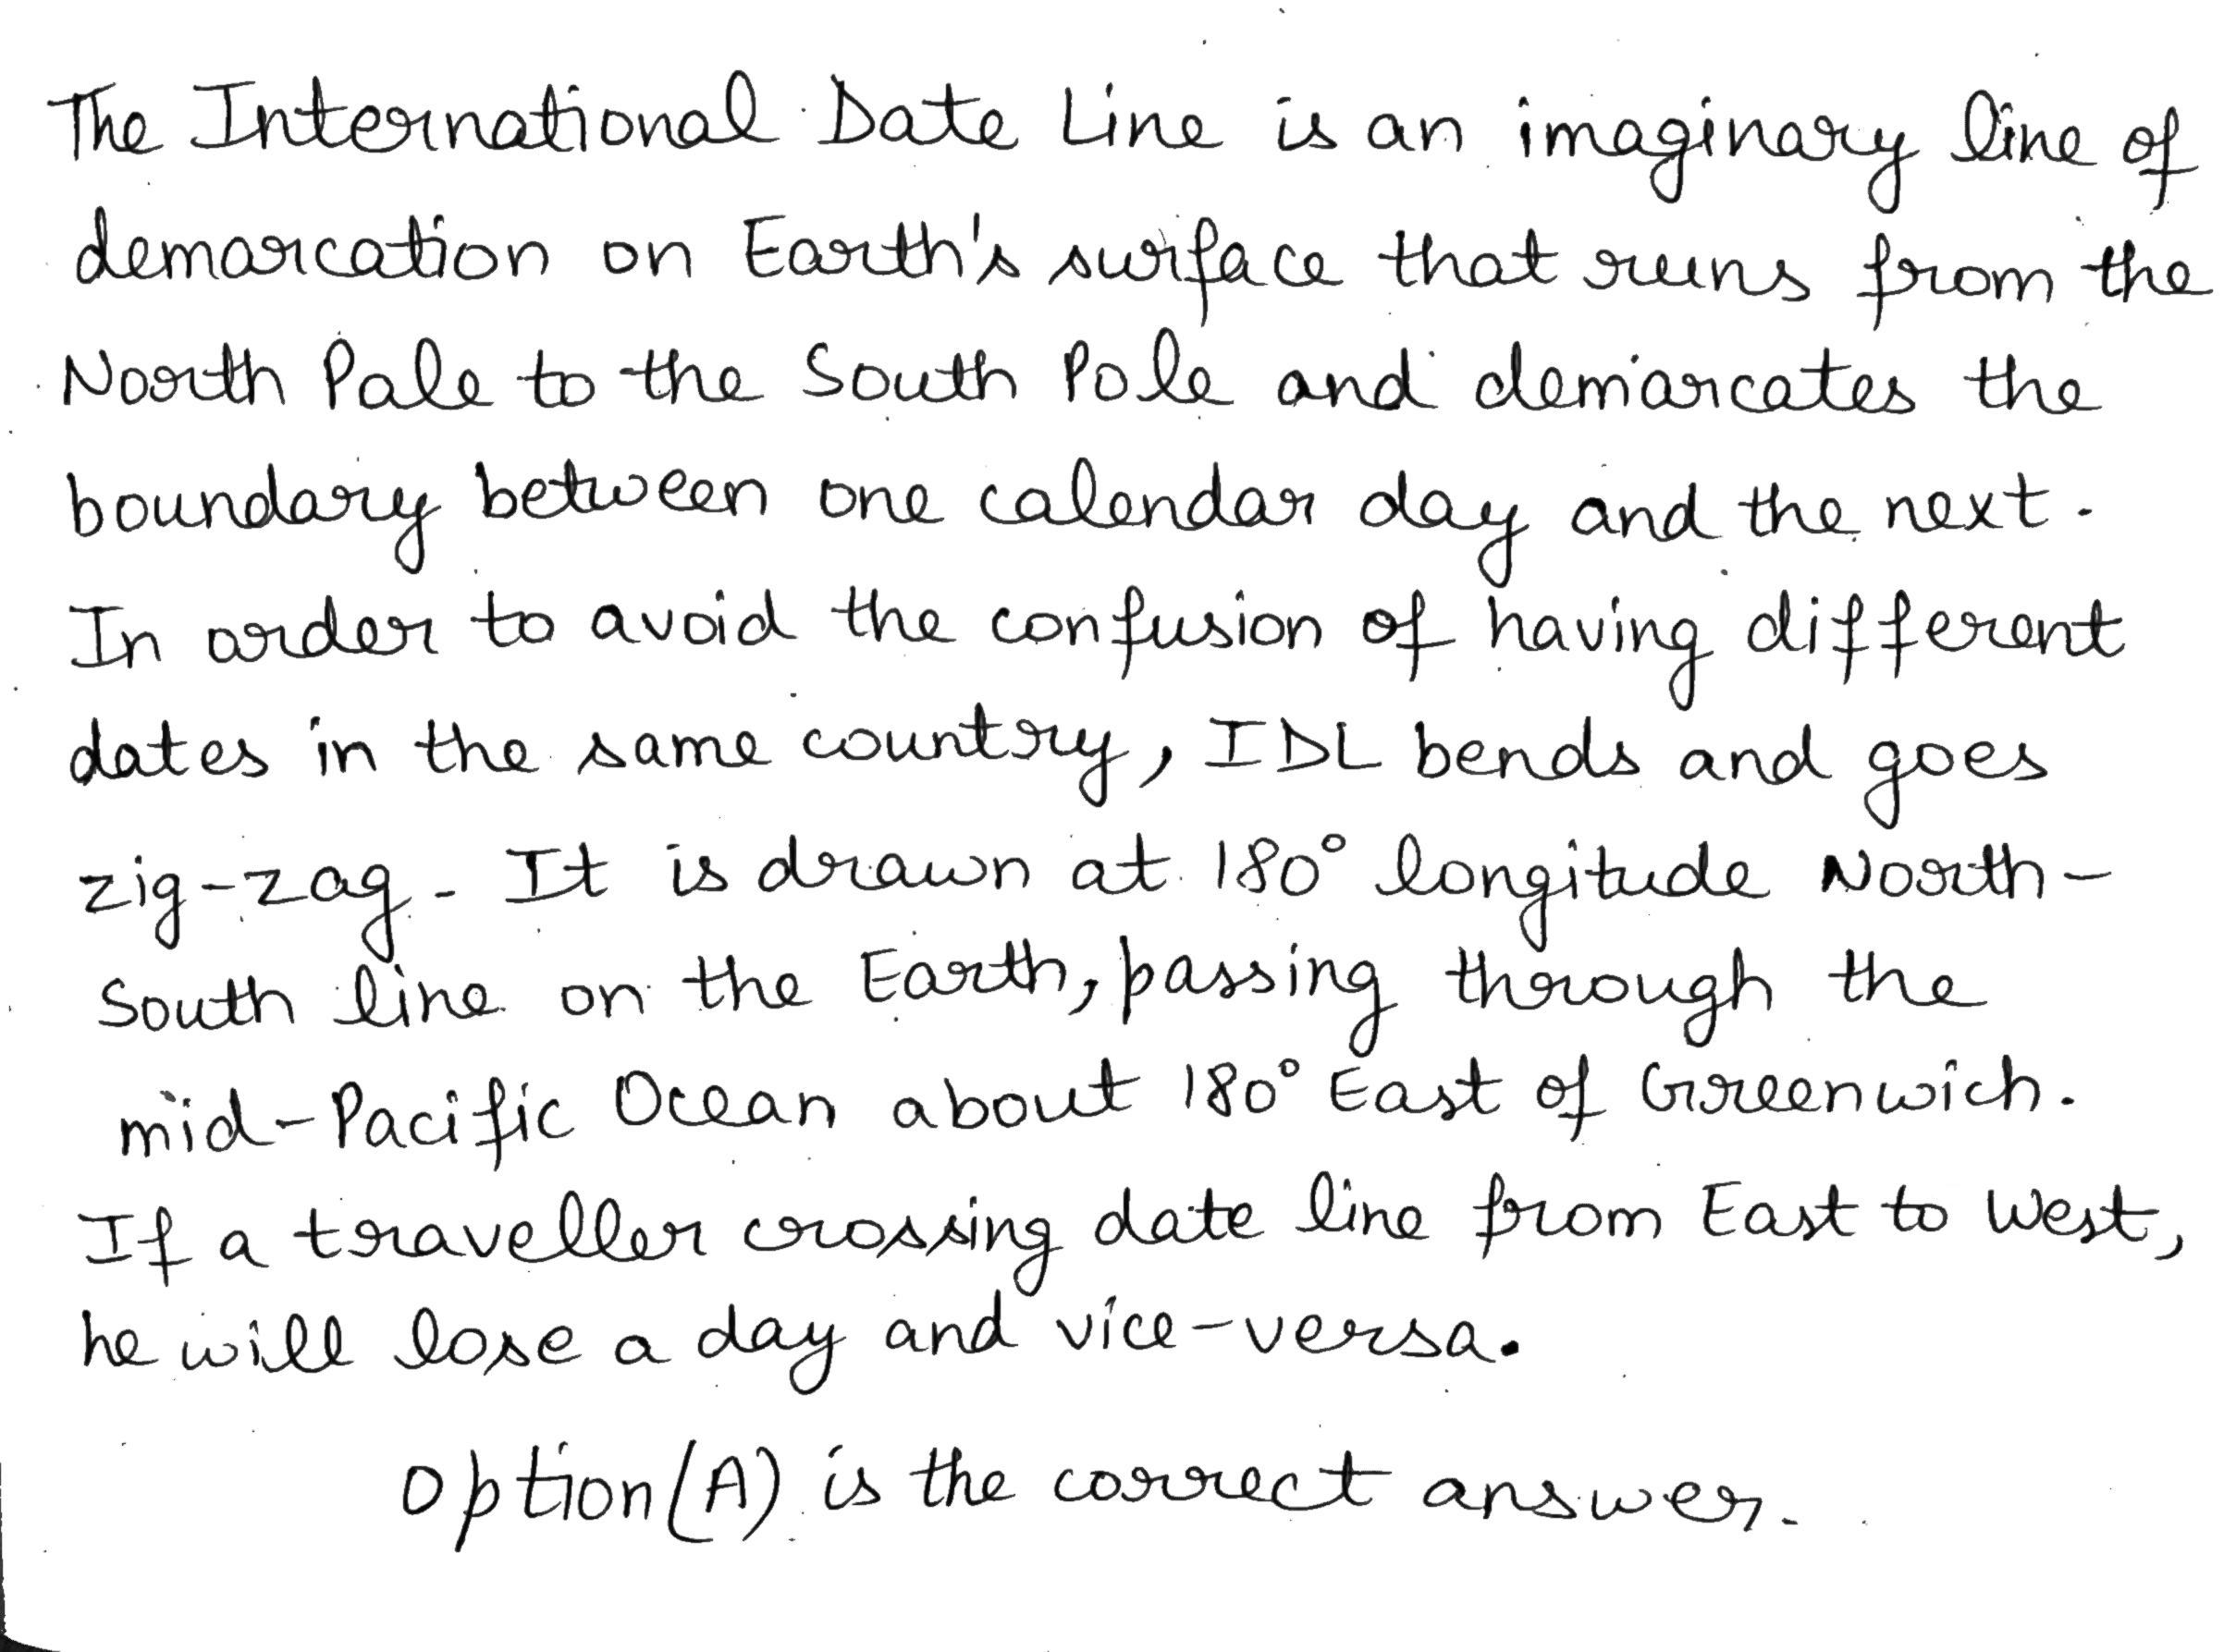 The International Date Line is an imaginary line of
demarcation on Earth's surface that runs from the
North Pale to the South Pole and demarcates the
boundary between one calendar day and the next.
In order to avoid the confusion of having different
dates in the same country, IDL bends and goes
zig-zag. It is drawn at 180° longitude North-
South line on the Earth, passing through the
mid-Pacific Ocean about 180° East of Greenwich.
If a traveller crossing date line from East to West,
he will lose a day and vice-versa.
Option (A) is the correct answer.